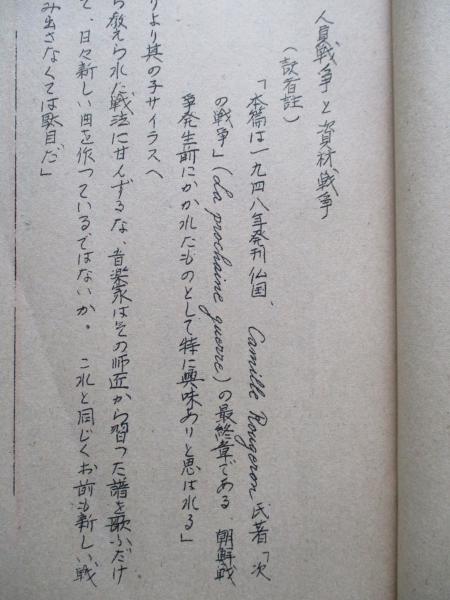 人員戦争と資材戦争
(訳者註)
「本篇は一九四八年発刊仏国、Camille Rougeron氏著「次
の戦争」(La prochaine guerre)の最終章である 朝鮮戦
争発生前にかかれたものとして特に興味ありと思はれる」
りより其の子サイラスへ
ら教えられた戦法に甘んずるな、音楽家はその師匠から習つた譜を歌ふだけ
て、日々新しい曲を作つているではないか。これと同じくお前も新しい戦
み出さなくては駄目だ」